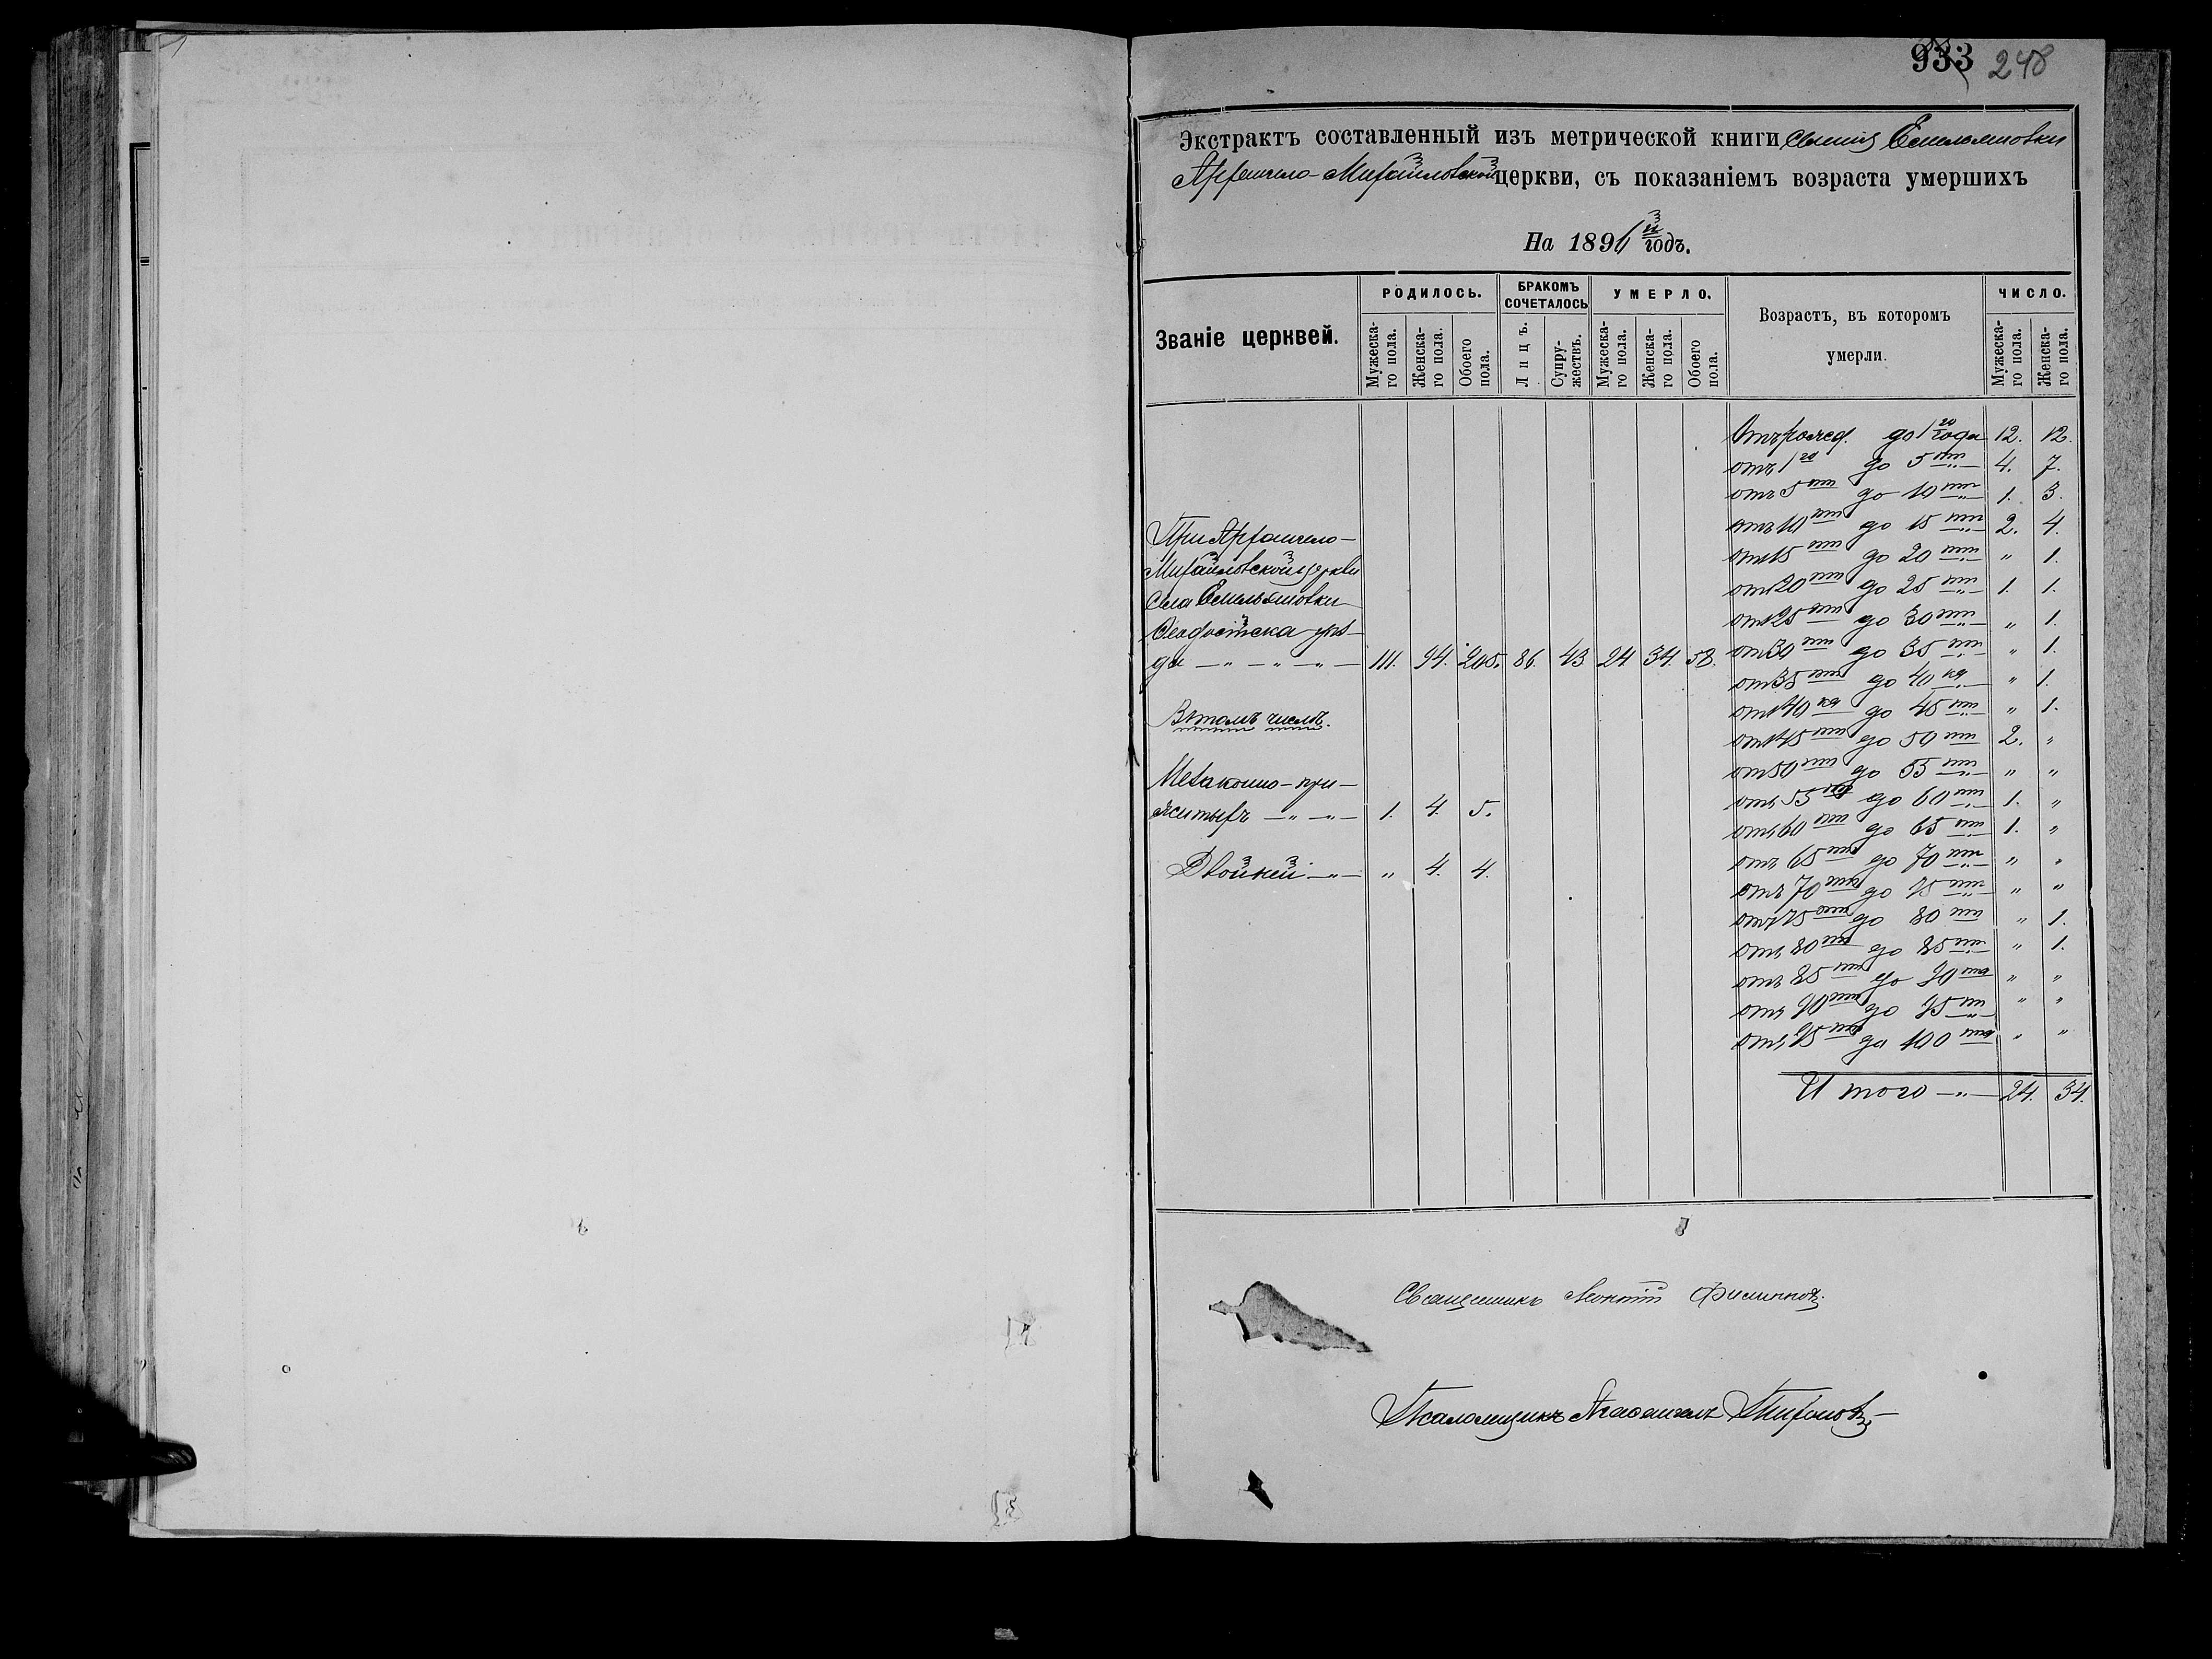 933 248
Экстрактъ составленный изъ метрической книги Емельяновки
Архангело-Михайловской церкви, съ показаніемъ возраста умершихъ
На 1891й годъ.
Званіе церквей. РОДИЛОСЬ. БРАКОМЪ СОЧЕТАЛОСЬ УМЕРЛО. Возрастъ, въ которомъ умерли. ЧИСЛО.
Мужеска-го пола. Женска-го пола. Обоего пола. Лицъ. Супру-жествъ. Мужеска-го пола. Женска-го пола. Обоего пола. Мужеска-го пола. Женска-го пола.
Отъ рожд. до 1го года 12. 12.
отъ 1го до 5ти 4. 7.
отъ 5ти до 10ти 1. 3.
отъ 10ти до 15ти 2. 4.
отъ 15ти до 20ти " 1.
отъ 20ти до 25ти 1. 1.
отъ 25ти до 30ти " 1.
отъ 30ти до 35ти " 1.
отъ 35ти до 40ка " 1.
отъ 40ка до 45ти " 1.
отъ 45ти до 50ти 2. "
отъ 50ти до 55ти " "
отъ 55ти до 60ти 1. "
отъ 60ти до 65ти 1. "
отъ 65ти до 70ти " "
отъ 70ти до 75ти " "
отъ 75ти до 80ти " 1.
отъ 80ти до 85ти " 1.
отъ 85ти до 90та " "
отъ 90та до 95ти " "
отъ 95ти до 100та " "
Итого — " — 24. 34.
При Архангело-
Михайловской церкви
села Емельяновки
Феодосійска уѣз-
да — " — " — " — 111. 94. 205. 86. 43 24 34. 58.
Въ томъ числѣ.
Незаконно-при-
житыхъ — " — " — 1. 4. 5.
Двойней — " — " 4. 4.
Священникъ Леонтій Филипповъ.
Псаломщикъ Тихоновъ